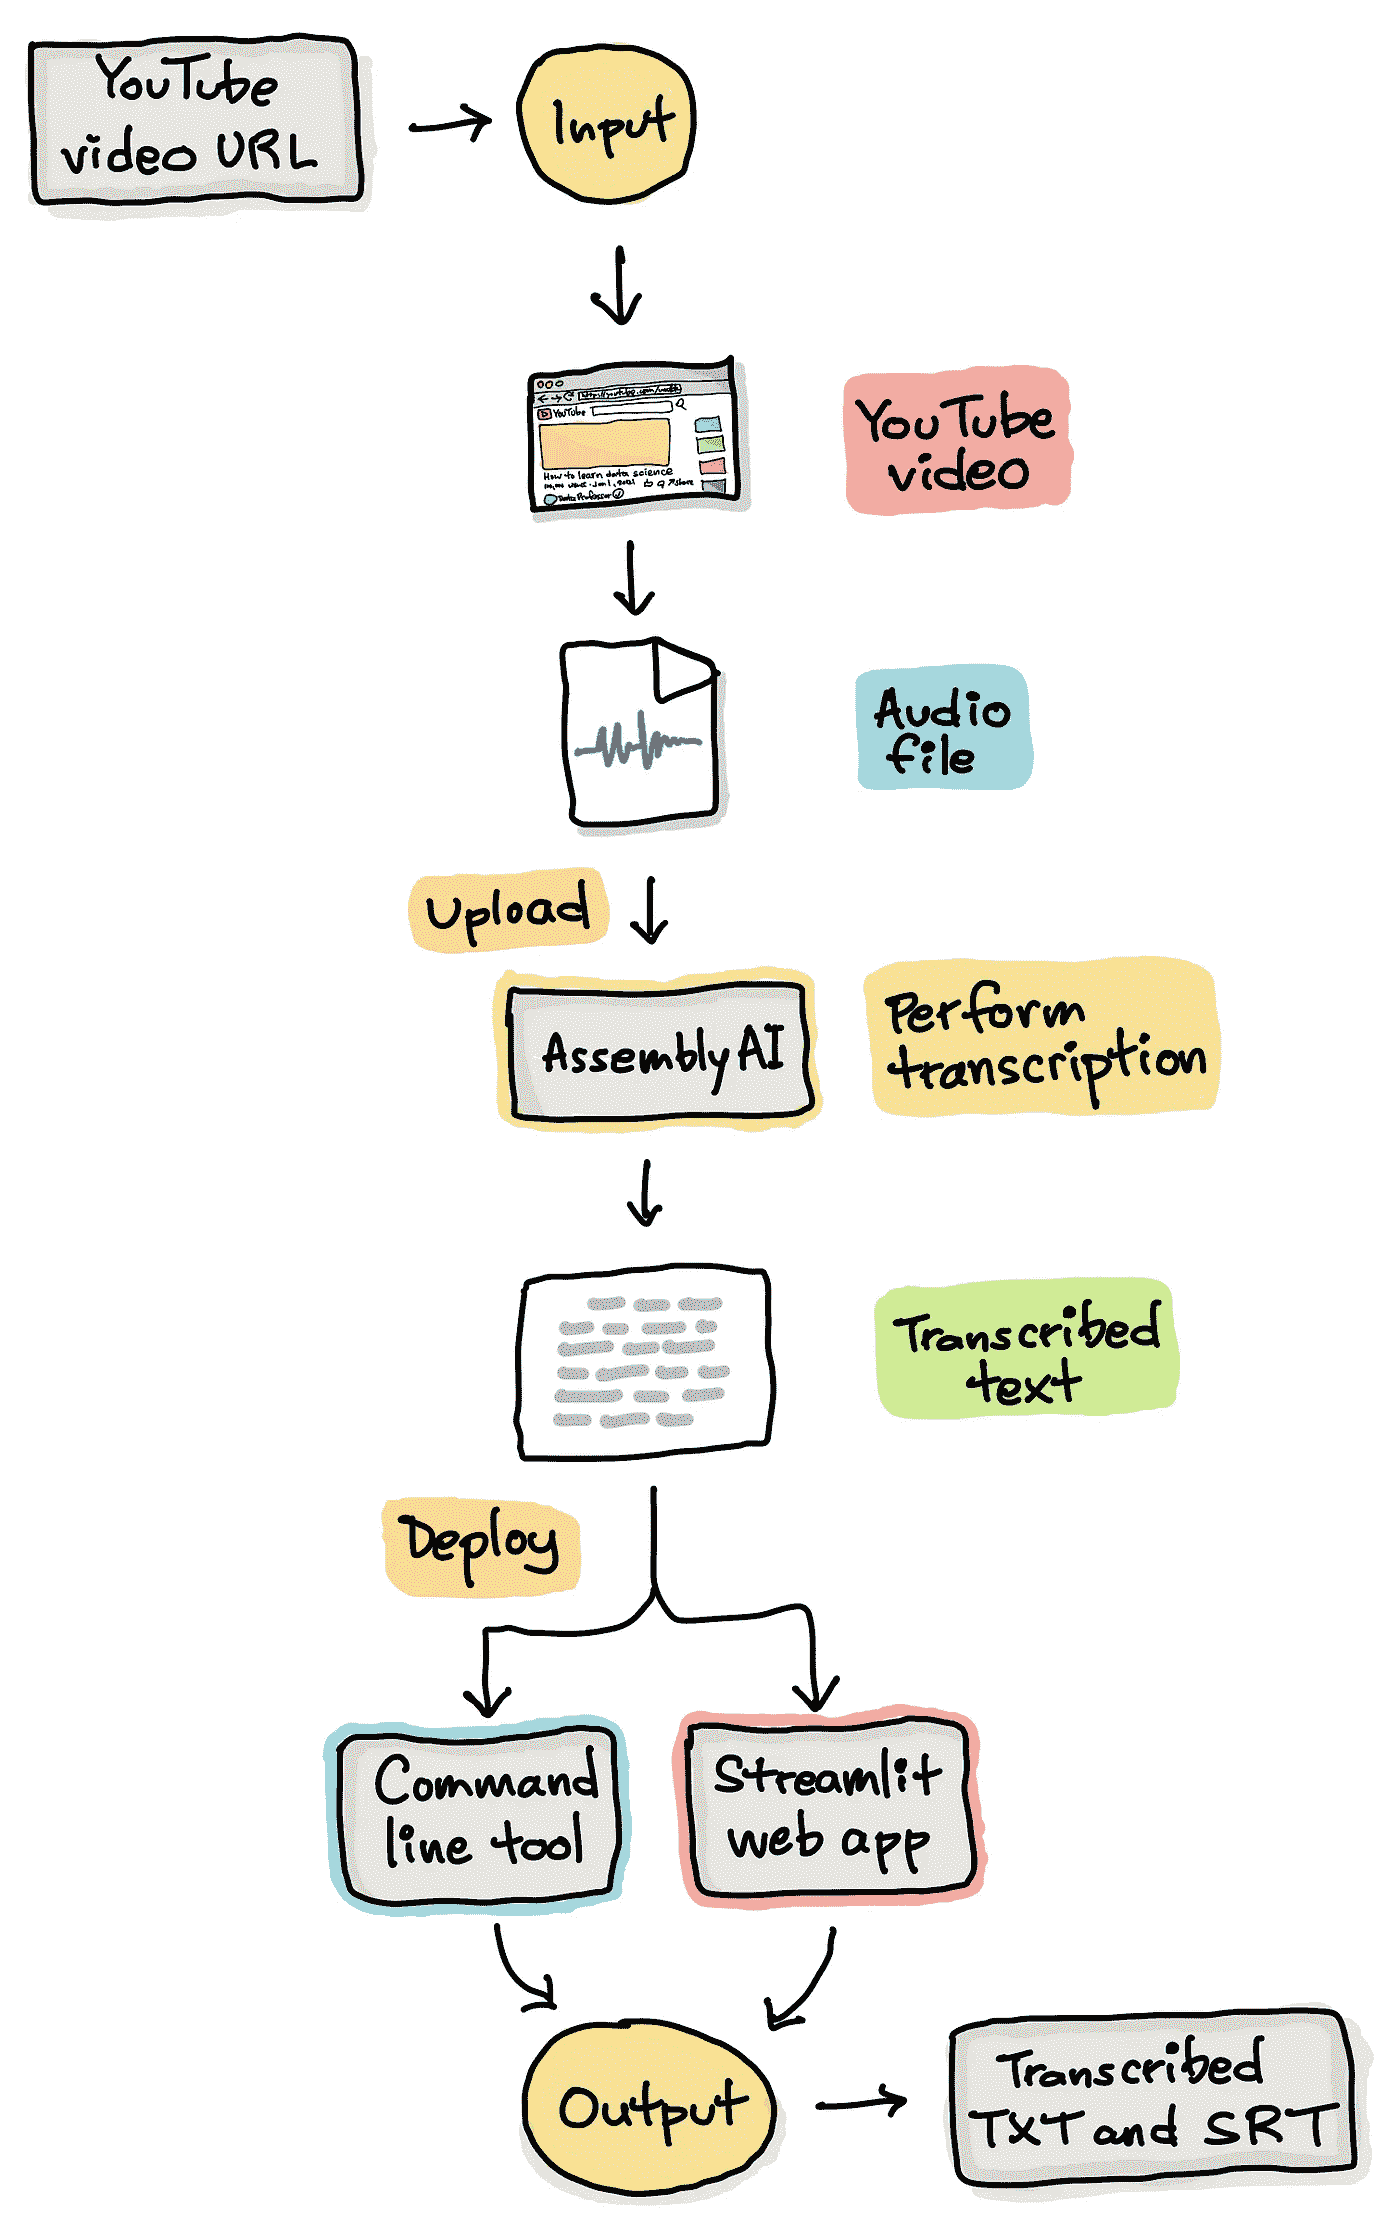 YouTube
video URL
Input
YouTube
How to learn data science
Data Professor
YouTube
video
Audio
file
Upload
AssemblyAI
Perform
transcription
Transcribed
text
Deploy
Command
line tool
Streamlit
web app
Output
Transcribed
TXT and SRT